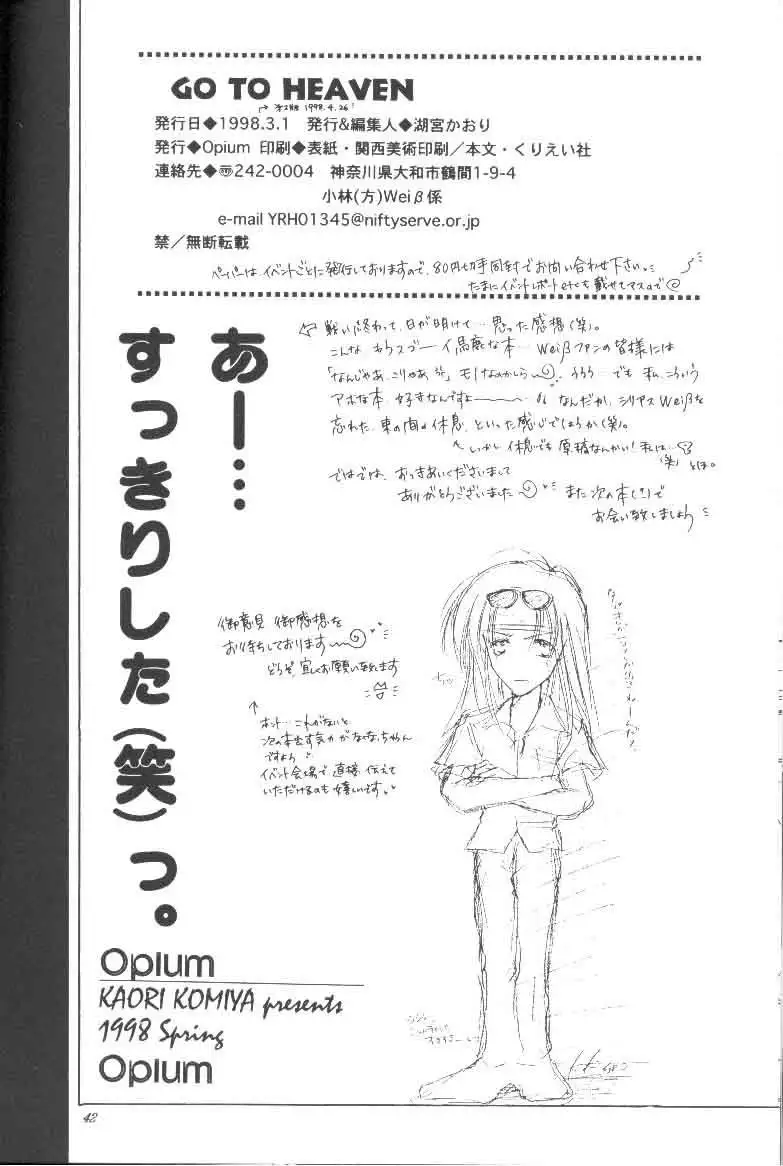 GO TO HEAVEN
1998.4.26
発行日◆1998.3.1 発行&編集人◆湖宮かおり
発行◆Opium 印刷◆表紙・関西美術印刷/本文・くりえい社
連絡先◆〠242-0004 神奈川県大和市鶴間1-9-4
小林(方)Weiβ係
e-mail YRH01345@niftyserve.or.jp
禁/無断転載
ペーパーはイベントごとに発行しておりますので、80円切手同封でお問い合わせ下さい。
たまにイベントレポートetcも載せてマスので
戦い終わって、日が明けて…思った感想(笑)。
こんな ものスゴーイ馬鹿な本… Weiβファンの皆様には
「なんじゃあ、こりゃあ」モノなのかしら〜 ううう…でも 私、こういう
アホな本、好きなんですよ〜 なんだか、シリアスWeiβを
忘れた、束の間の休息、といった感じでしょうか(笑)。
しかし休息でも原稿なんかい!私は…(笑)
とほ。
ではでは、おつきあいくださいまして
ありがとうございました
また次の本(!)で
お会い致しましょう
あー…
すっきりした(笑)っ。
御意見 御感想を
お待ちしております〜
どうぞ、宜しくお願い致します
ホント…これがないと
次の本出す気力がなくなっちゃうん
ですよう
イベント会場で直接伝えて
いただけるのも嬉しいです。
Opium
KAORI KOMIYA presents
1998 Spring
Opium
42